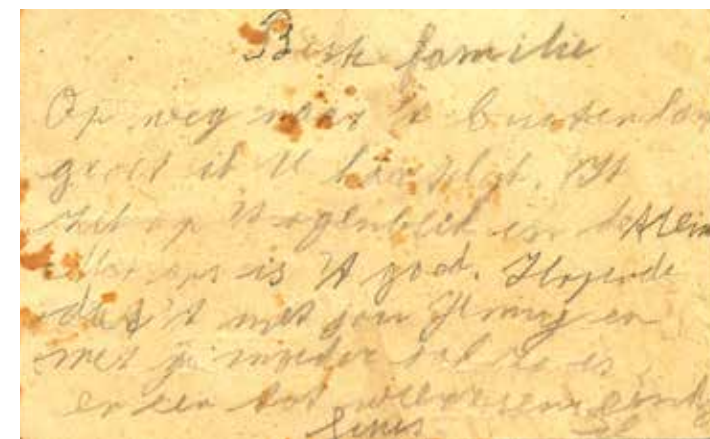 Beste familie
Op weg naar 't buitenlan
groet ik U hartelijk. Ik
zit op 't ogenblik in de trein
is 't goed. Hopende
dat 't met jou Jenny en
met je moeder ook zo is
en tot weerziens